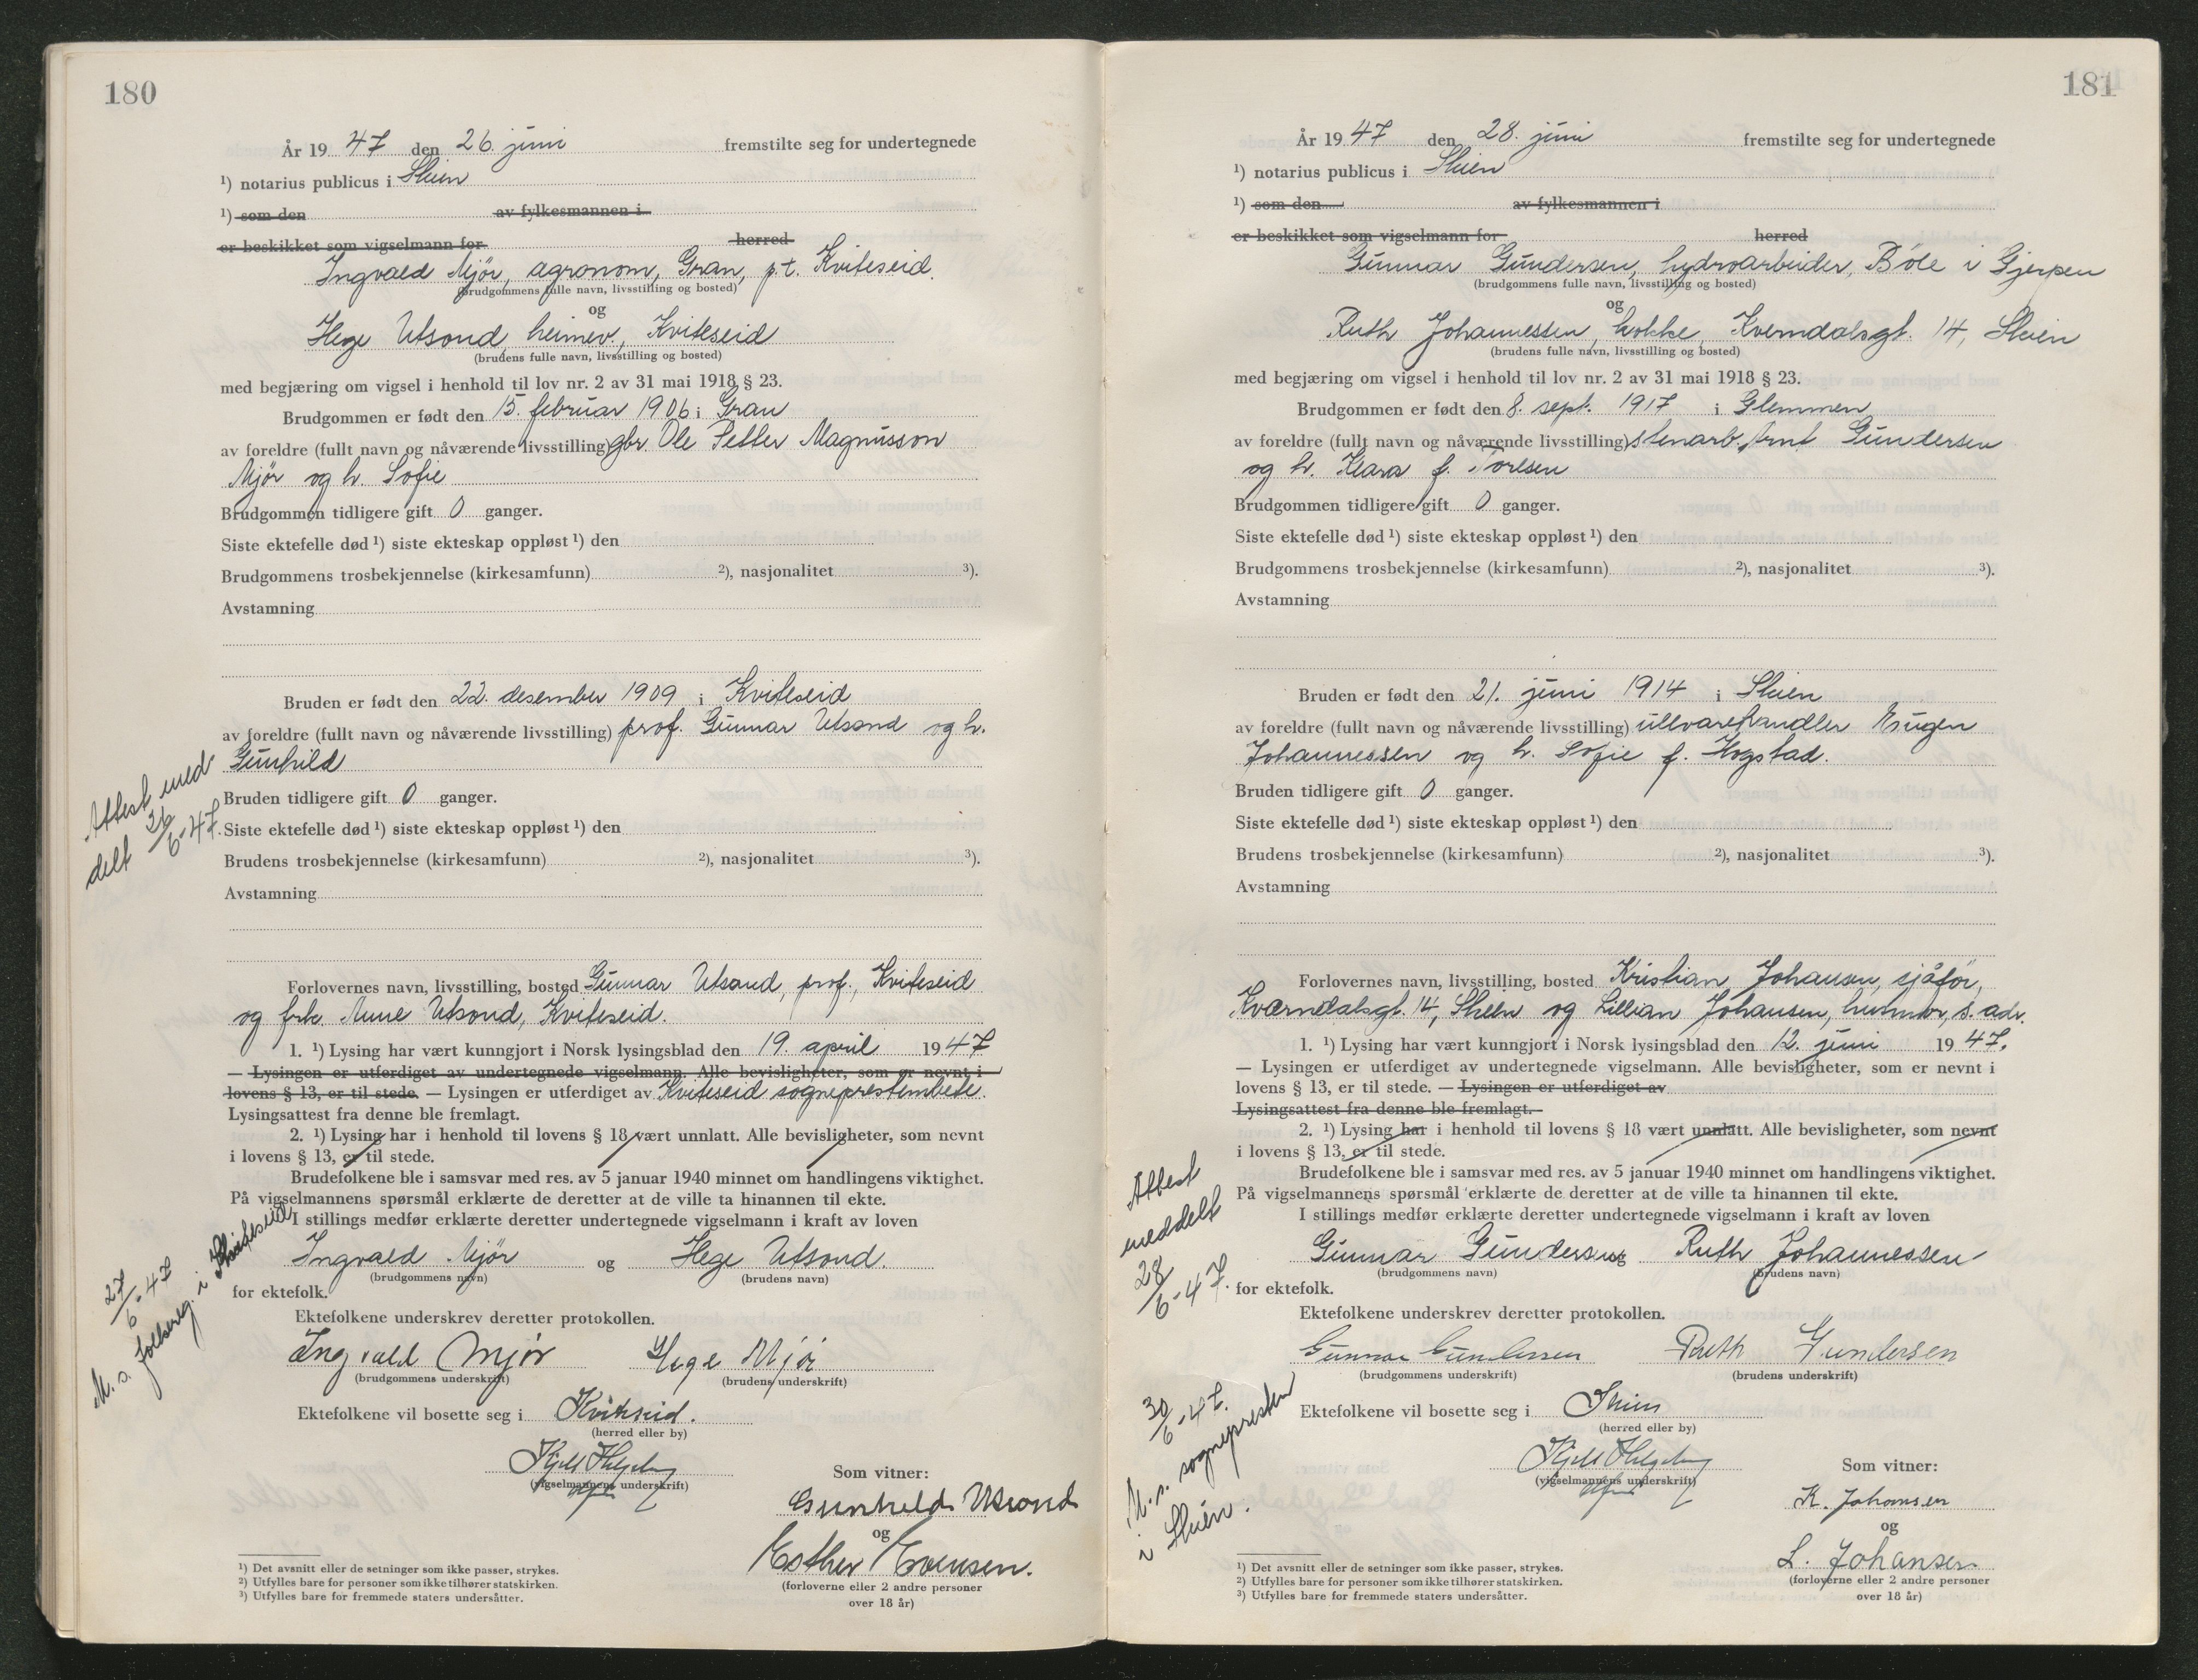 180
År 1947 den 26. juni fremstilte seg for undertegnede
¹) notarius publicus i Skien
¹) som den av fylkesmannen i
er beskikket som vigselmann for herred
Ingvald Mjør, agronom, Gran, p.t. Kviteseid.
(brudgommens fulle navn, livsstilling og bosted)
og
Hege Utsond, heimev., Kviteseid
(brudens fulle navn, livsstilling og bosted)
med begjæring om vigsel i henhold til lov nr. 2 av 31 mai 1918 § 23.
Brudgommen er født den 15. februar 1906 i Gran
av foreldre (fullt navn og nåværende livsstilling) gbr. Ole Petter Magnusson
Mjør og h. Sofie
Brudgommen tidligere gift 0 ganger.
Siste ektefelle død ¹) siste ekteskap oppløst ¹) den
Brudgommens trosbekjennelse (kirkesamfunn) ²), nasjonalitet ³).
Avstamning
Bruden er født den 22. desember 1909 i Kviteseid
av foreldre (fullt navn og nåværende livsstilling) prof. Gunnar Utsond og h.
Gunhild
Bruden tidligere gift 0 ganger.
Siste ektefelle død ¹) siste ekteskap oppløst ¹) den
Brudens trosbekjennelse (kirkesamfunn) ²), nasjonalitet ³).
Avstamning
Attest med
delt 26/6-47.
Forlovernes navn, livsstilling, bosted Gunnar Utsond, prof., Kviteseid
og frk. Anne Utsond, Kviteseid.
1. ¹) Lysing har vært kunngjort i Norsk lysingsblad den 19. april 1947
— Lysingen er utferdiget av undertegnede vigselmann. Alle bevisligheter, som er nevnt i
lovens § 13, er til stede. — Lysingen er utferdiget av Kviteseid sogneprestembete.
Lysingsattest fra denne ble fremlagt.
2. ¹) Lysing har i henhold til lovens § 18 vært unnlatt. Alle bevisligheter, som nevnt
i lovens § 13, er til stede.
Brudefolkene ble i samsvar med res. av 5 januar 1940 minnet om handlingens viktighet.
På vigselmannens spørsmål erklærte de deretter at de ville ta hinannen til ekte.
I stillings medfør erklærte deretter undertegnede vigselmann i kraft av loven
Ingvald Mjør og Hege Utsond.
(brudgommens navn) (brudens navn)
for ektefolk.
27/6-47
M. s. folkereg. i Kviteseid
Ektefolkene underskrev deretter protokollen.
Ingvald Mjør Hege Mjør
(brudgommens underskrift) (brudens underskrift)
Ektefolkene vil bosette seg i Kviteseid.
(herred eller by)
Kjell Helgeby
(vigselmannens underskrift)
Som vitner:
Gunhild Utsond
og
Esther Evensen.
(forloverne eller 2 andre personer
over 18 år)
¹) Det avsnitt eller de setninger som ikke passer, strykes.
²) Utfylles bare for personer som ikke tilhører statskirken.
³) Utfylles bare for fremmede staters undersåtter.
181
År 1947 den 28. juni fremstilte seg for undertegnede
¹) notarius publicus i Skien
¹) som den av fylkesmannen i
er beskikket som vigselmann for herred
Gunnar Gundersen, hydroarbeider, Bøle i Gjerpen
(brudgommens fulle navn, livsstilling og bosted)
og
Ruth Johannessen, kokke, Kverndalsgt. 14, Skien
(brudens fulle navn, livsstilling og bosted)
med begjæring om vigsel i henhold til lov nr. 2 av 31 mai 1918 § 23.
Brudgommen er født den 8. sept. 1917 i Glemmen
av foreldre (fullt navn og nåværende livsstilling) stenarb. Arnt Gundersen
og h. Klara f. Torlsen
Brudgommen tidligere gift 0 ganger.
Siste ektefelle død ¹) siste ekteskap oppløst ¹) den
Brudgommens trosbekjennelse (kirkesamfunn) ²), nasjonalitet ³).
Avstamning
Bruden er født den 21. juni 1914 i Skien
av foreldre (fullt navn og nåværende livsstilling) ullvarehandler Eugen
Johannessen og h. Sofie f. Hogstad.
Bruden tidligere gift 0 ganger.
Siste ektefelle død ¹) siste ekteskap oppløst ¹) den
Brudens trosbekjennelse (kirkesamfunn) ²), nasjonalitet ³).
Avstamning
Forlovernes navn, livsstilling, bosted Kristian Johansen, sjåfør,
Kværndalsgt. 14, Skien og Lillian Johansen, husmor, s. adr.
1. ¹) Lysing har vært kunngjort i Norsk lysingsblad den 12. juni 1947.
— Lysingen er utferdiget av undertegnede vigselmann. Alle bevisligheter, som er nevnt i
lovens § 13, er til stede. — Lysingen er utferdiget av
Lysingsattest fra denne ble fremlagt.
2. ¹) Lysing har i henhold til lovens § 18 vært unnlatt. Alle bevisligheter, som nevnt
i lovens § 13, er til stede.
Brudefolkene ble i samsvar med res. av 5 januar 1940 minnet om handlingens viktighet.
På vigselmannens spørsmål erklærte de deretter at de ville ta hinannen til ekte.
I stillings medfør erklærte deretter undertegnede vigselmann i kraft av loven
Gunnar Gundersen og Ruth Johannessen
(brudgommens navn) (brudens navn)
for ektefolk.
Attest
meddelt
28/6-47.
Ektefolkene underskrev deretter protokollen.
Gunnar Gundersen Ruth Gundersen
(brudgommens underskrift) (brudens underskrift)
Ektefolkene vil bosette seg i Skien
(herred eller by)
30/6-47.
M. s. sognepresten
i Skien.
Kjell Helgeby
(vigselmannens underskrift)
Som vitner:
K. Johansen
og
L. Johansen
(forloverne eller 2 andre personer
over 18 år)
¹) Det avsnitt eller de setninger som ikke passer, strykes.
²) Utfylles bare for personer som ikke tilhører statskirken.
³) Utfylles bare for fremmede staters undersåtter.